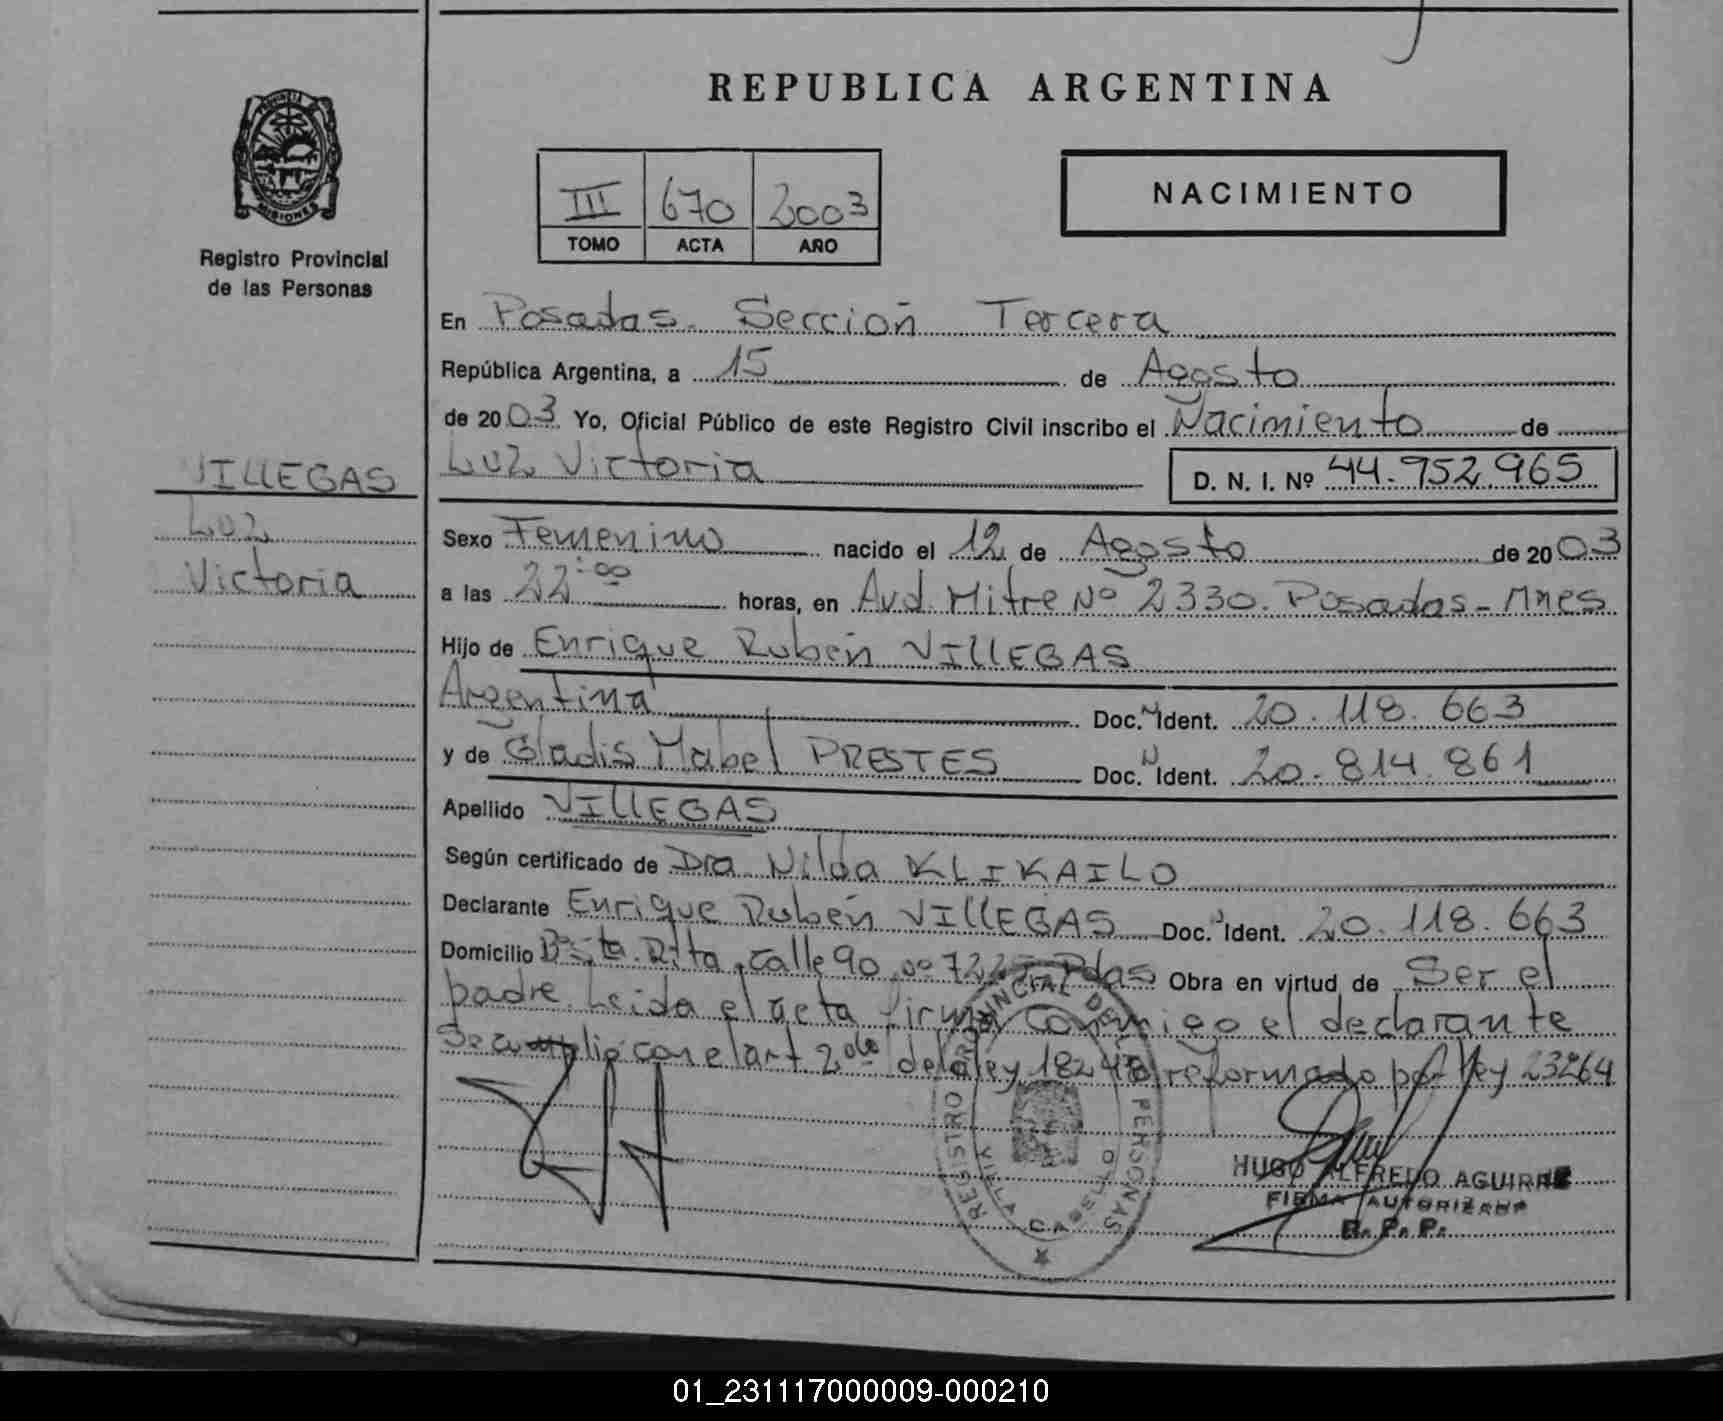 REPUBLICA ARGENTINA
PROVINCIA DE
MISIONES
Registro Provincial
de las Personas
III 670 2003
TOMO ACTA AÑO
NACIMIENTO
En Posadas. Sección Tercera
República Argentina, a 15 de Agosto
de 2003 Yo, Oficial Público de este Registro Civil inscribo el Nacimiento de
VILLEGAS
Luz Victoria D. N. I. Nº 44.952.965
Luz
Sexo Femenino nacido el 12 de Agosto de 2003
Victoria
a las 22:00 horas, en Avd. Mitre Nº 2330. Posadas - Mnes
Hijo de Enrique Rubén VILLEGAS
Argentina Doc. Ident. 20.118.663
y de Gladis Mabel PRESTES Doc. Ident. 20.814.861
Apellido VILLEGAS
Según certificado de Dra. Nilda KLIKAILO
Declarante Enrique Rubén VILLEGAS Doc. Ident. 20.118.663
Domicilio Bº Sta. Rita, calle 90 nº Pdas Obra en virtud de Ser el
padre. Leida el acta firma conmigo el declarante
Se cumplió con el art. 2do de la ley 18248 reformado por ley 23264
REGISTRO PROVINCIAL DE LAS PERSONAS
HUGO ALFREDO AGUIRRE
FIRMA AUTORIZADA
R. P. P.
01_231117000009-000210